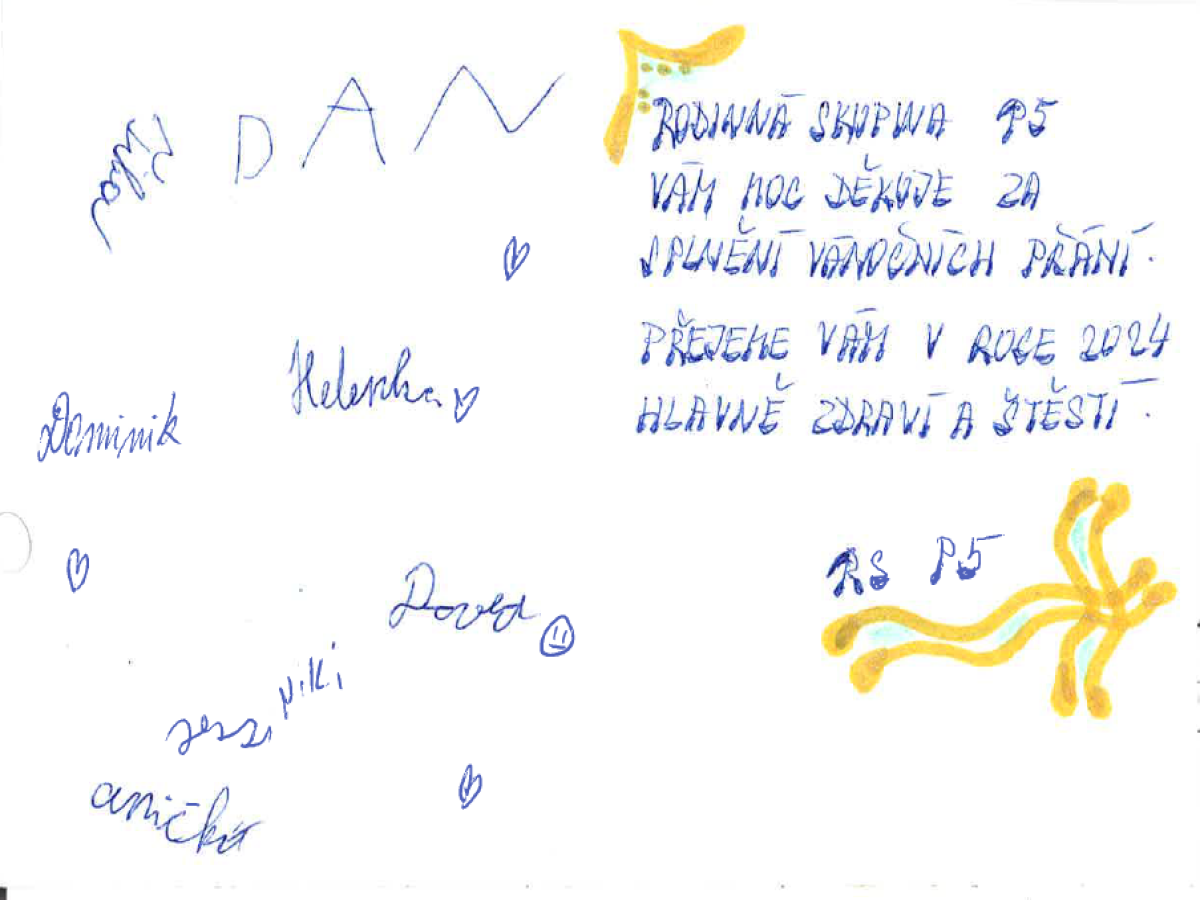 DAN
Helenka
Dominik
David
Niki
anička
RODINNÁ SKUPINA P5
VÁM MOC DĚKUJE ZA
SPLNĚNÍ VÁNOČNÍCH PŘÁNÍ.
PŘEJEME VÁM V ROCE 2024
HLAVNĚ ZDRAVÍ A ŠTĚSTÍ.
RS P5